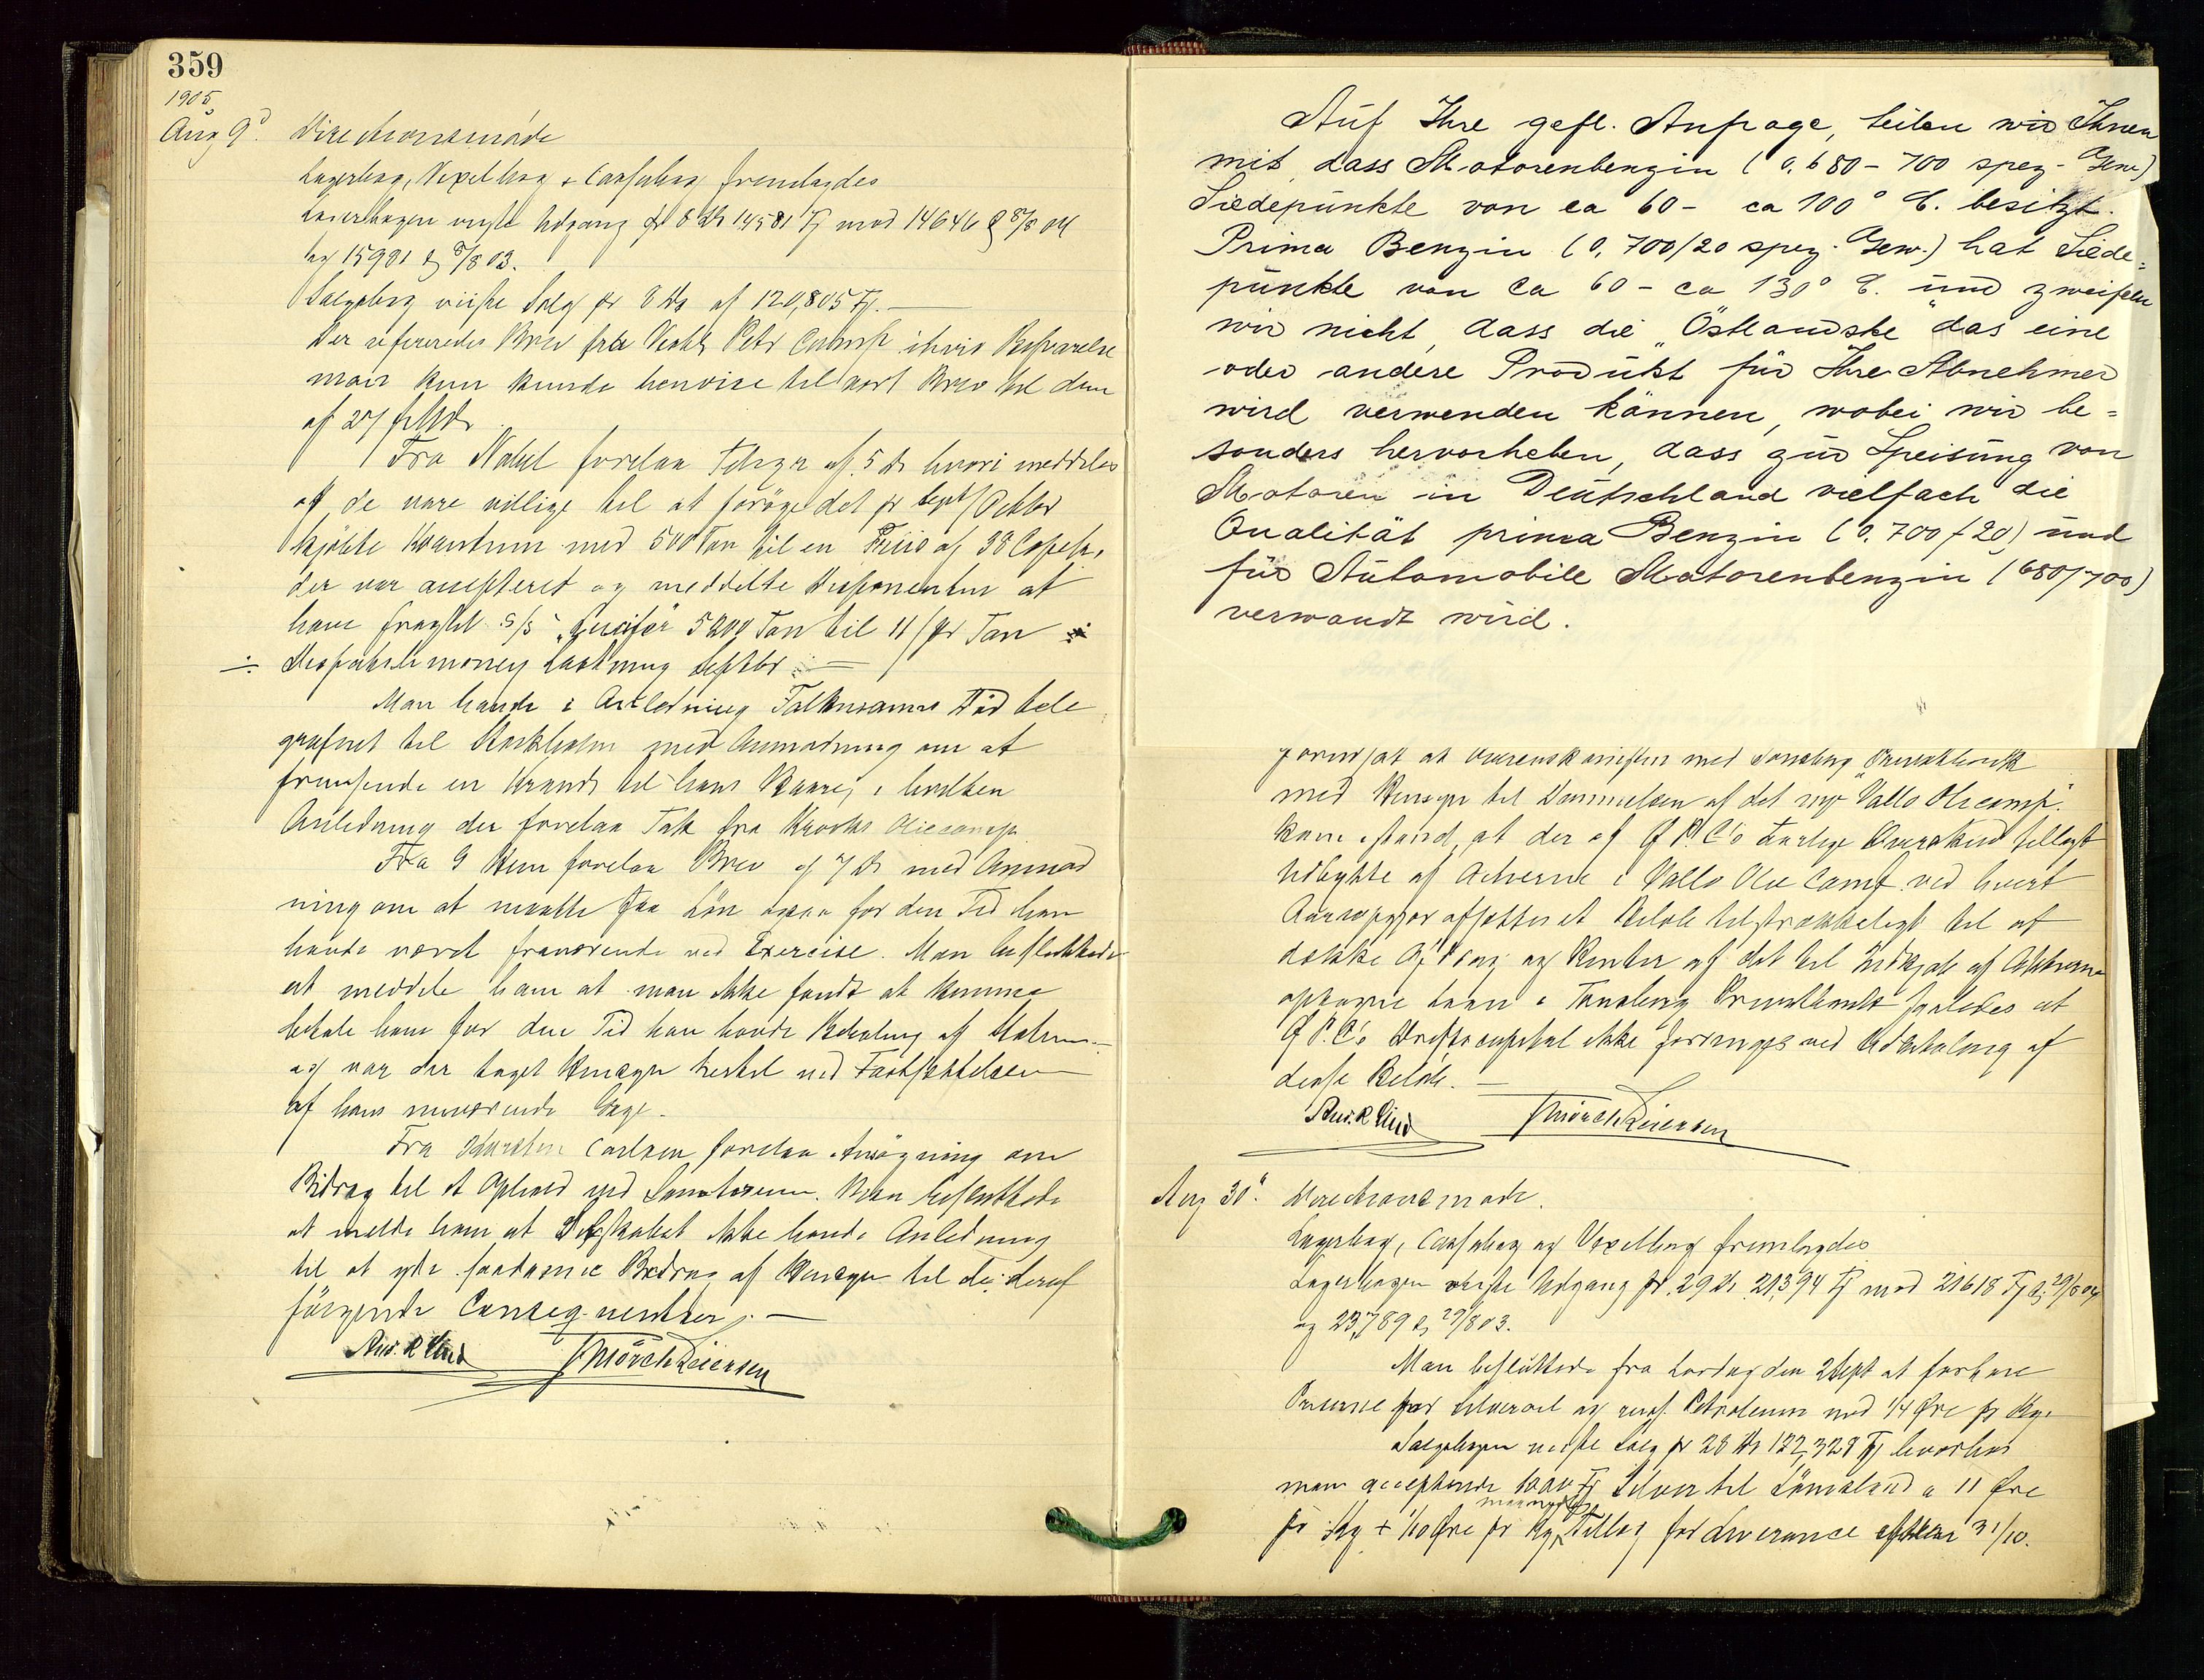 359
1905
Aug 9d. Directionsmöde
Lagerbog, Vexelbog & Cassabog fremlagdes
Lagerbogen viiste Udgang pr 8 ds 14581 Fj mod 14646 pr 8/8 04
og 15981 pr 8/8 03.
Salgsbog viiste Salg pr 8 ds af 120,805 Fj. —
Der refereredes Brev fra Petr Comp. i hvis Besvarelse
man kun kunde henvise til vort Brev til dem
af 27 f. Md.
Fra Nobel forelaa Telegr af 5 ds hvori meddeles
at de vare villige til at foröge det pr Sept/Octbr
kjöbte Kvantum med 500 Ton til en Priis af 38 Copek,
der var accepteret og meddelte Disponenten at
have fragtet S/S "Lucifer" 5200 Ton til 11/ pr Ton
÷ Dispatch money Lastning Septbr —
Man havde i Anledning Falkmans Död tele
graferet til Stockholm med Anmodning om at
fremsende en Krands til hans Baare, i hvilken
Anledning der forelaa Tak fra Krooks Oliecomp.
Fra G forelaa Brev af 7 ds med Anmod
ning om at maatte faa Lön ogsaa for den Tid han
havde været fraværende ved Exercise. Man besluttede
at meddele ham at man ikke fandt at kunne
betale ham for den Tid han havde Betaling af Staten —
og var der taget Hensyn hertil ved Fastsættelsen
af hans nuværende Gage.
Fra Carlsen forelaa Ansögning om
Bidrag til et Ophold ved Sanatorium. Man besluttede
at melde ham at Selskabet ikke havde Anledning
til at yde saadanne Bidrag af Hensyn til de deraf
fölgende Consequentser. —
And. R Lind JMörch Reiersen
Auf Ihre gefl. Anfrage, teilen wir Ihnen
mit, dass Motorenbenzin (0,680-700 spez. Gew.)
Siedepunkte von ca 60- ca 100° C. besitzt.
Prima Benzin (0,700/20 spez. Gew.) hat Siede=
punkte von ca 60 - ca 130° C. und zweifeln
wir nicht, dass die "Östlandske" das eine
oder andere Produkt für Ihre Abnehmer
wird verwenden können, wobei wir be=
sonders hervorheben, dass zur Speisung von
Motoren in Deutschland vielfach die
Qualität prima Benzin (0.700/20) und
für Automobile Motorenbenzin (680/700)
verwandt wird.
forudsat at Overenskomsten med Tonsberg Privatbank
med Hensyn til Dannelsen af det nye Vallö Oliecomp.
kom istand, at der af Ö P. C's aarlige Overskud tillagt
Udbytte af Actierne i Vallö Olie Comp. ved hvert
Aarsopgjör afsættes et Belöb tilstrækkeligt til at
dække Afdrag og Renter af det til Indkjöb af Aktierne
optagne Laan i Tonsberg Privatbank saaledes at
Ö P. C's Driftscapital ikke forringes ved Udbetaling af
disse Belöb. —
And. R Lind JMörch Reiersen
Aug 30d. Directionsmöde.
Lagerbog, Cassabog og Vexelbog fremlagdes
Lagerbogen viiste Udgang pr. 29 ds 21394 Fj mod 21618 Fj pr 29/8 04
og 23,789 pr 29/8 03.
Man besluttede fra Lordag den 2 Sept at forhöie
Priserne for Silveroil og russ. Petroleum med 1/4 Öre pr Kg.
Salgsbogen viiste Salg pr 28 ds 122,328 Fj hvorhos
man accepterede 1000 Fj Silver til a 11 Öre
pr Kg + 1/10 Öre pr Kg maanedlig Tillæg for Leverance efter 31/10.